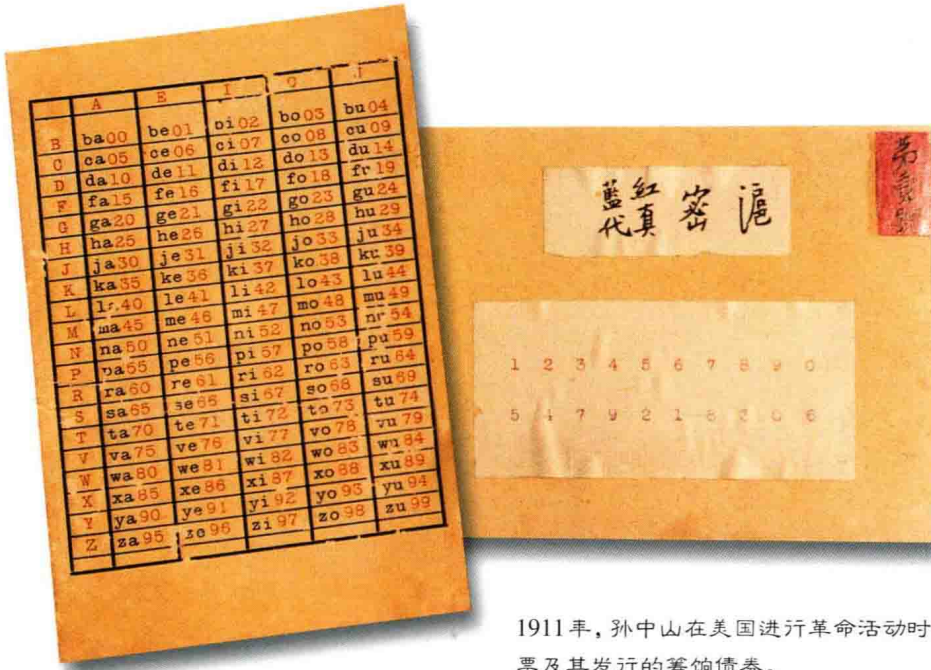 A E I O U
B ba00 be01 bi02 bo03 bu04
C ca05 ce06 ci07 co08 cu09
D da10 de11 di12 do13 du14
F fa15 fe16 fi17 fo18 fu19
G ga20 ge21 gi22 go23 gu24
H ha25 he26 hi27 ho28 hu29
J ja30 je31 ji32 jo33 ju34
K ka35 ke36 ki37 ko38 ku39
L la40 le41 li42 lo43 lu44
M ma45 me46 mi47 mo48 mu49
N na50 ne51 ni52 no53 nu54
P pa55 pe56 pi57 po58 pu59
R ra60 re61 ri62 ro63 ru64
S sa65 se66 si67 so68 su69
T ta70 te71 ti72 to73 tu74
V va75 ve76 vi77 vo78 vu79
W wa80 we81 wi82 wo83 wu84
X xa85 xe86 xi87 xo88 xu89
Y ya90 ye91 yi92 yo93 yu94
Z za95 ze96 zi97 zo98 zu99
滬
密
紅真
藍代
1 2 3 4 5 6 7 8 9 0
5 4 7 9 2 1 8 3 0 6
1911年，孙中山在美国进行革命活动时
票及其发行的筹饷债券。